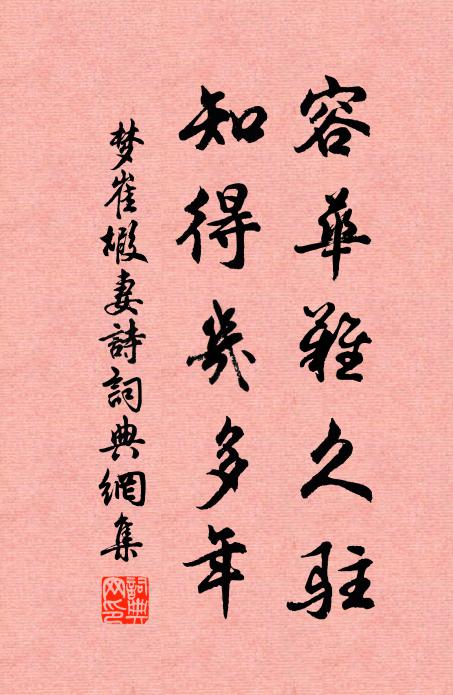 容華難久駐
知得幾多年
梦崔妻詩詞典網集
詞典
网印